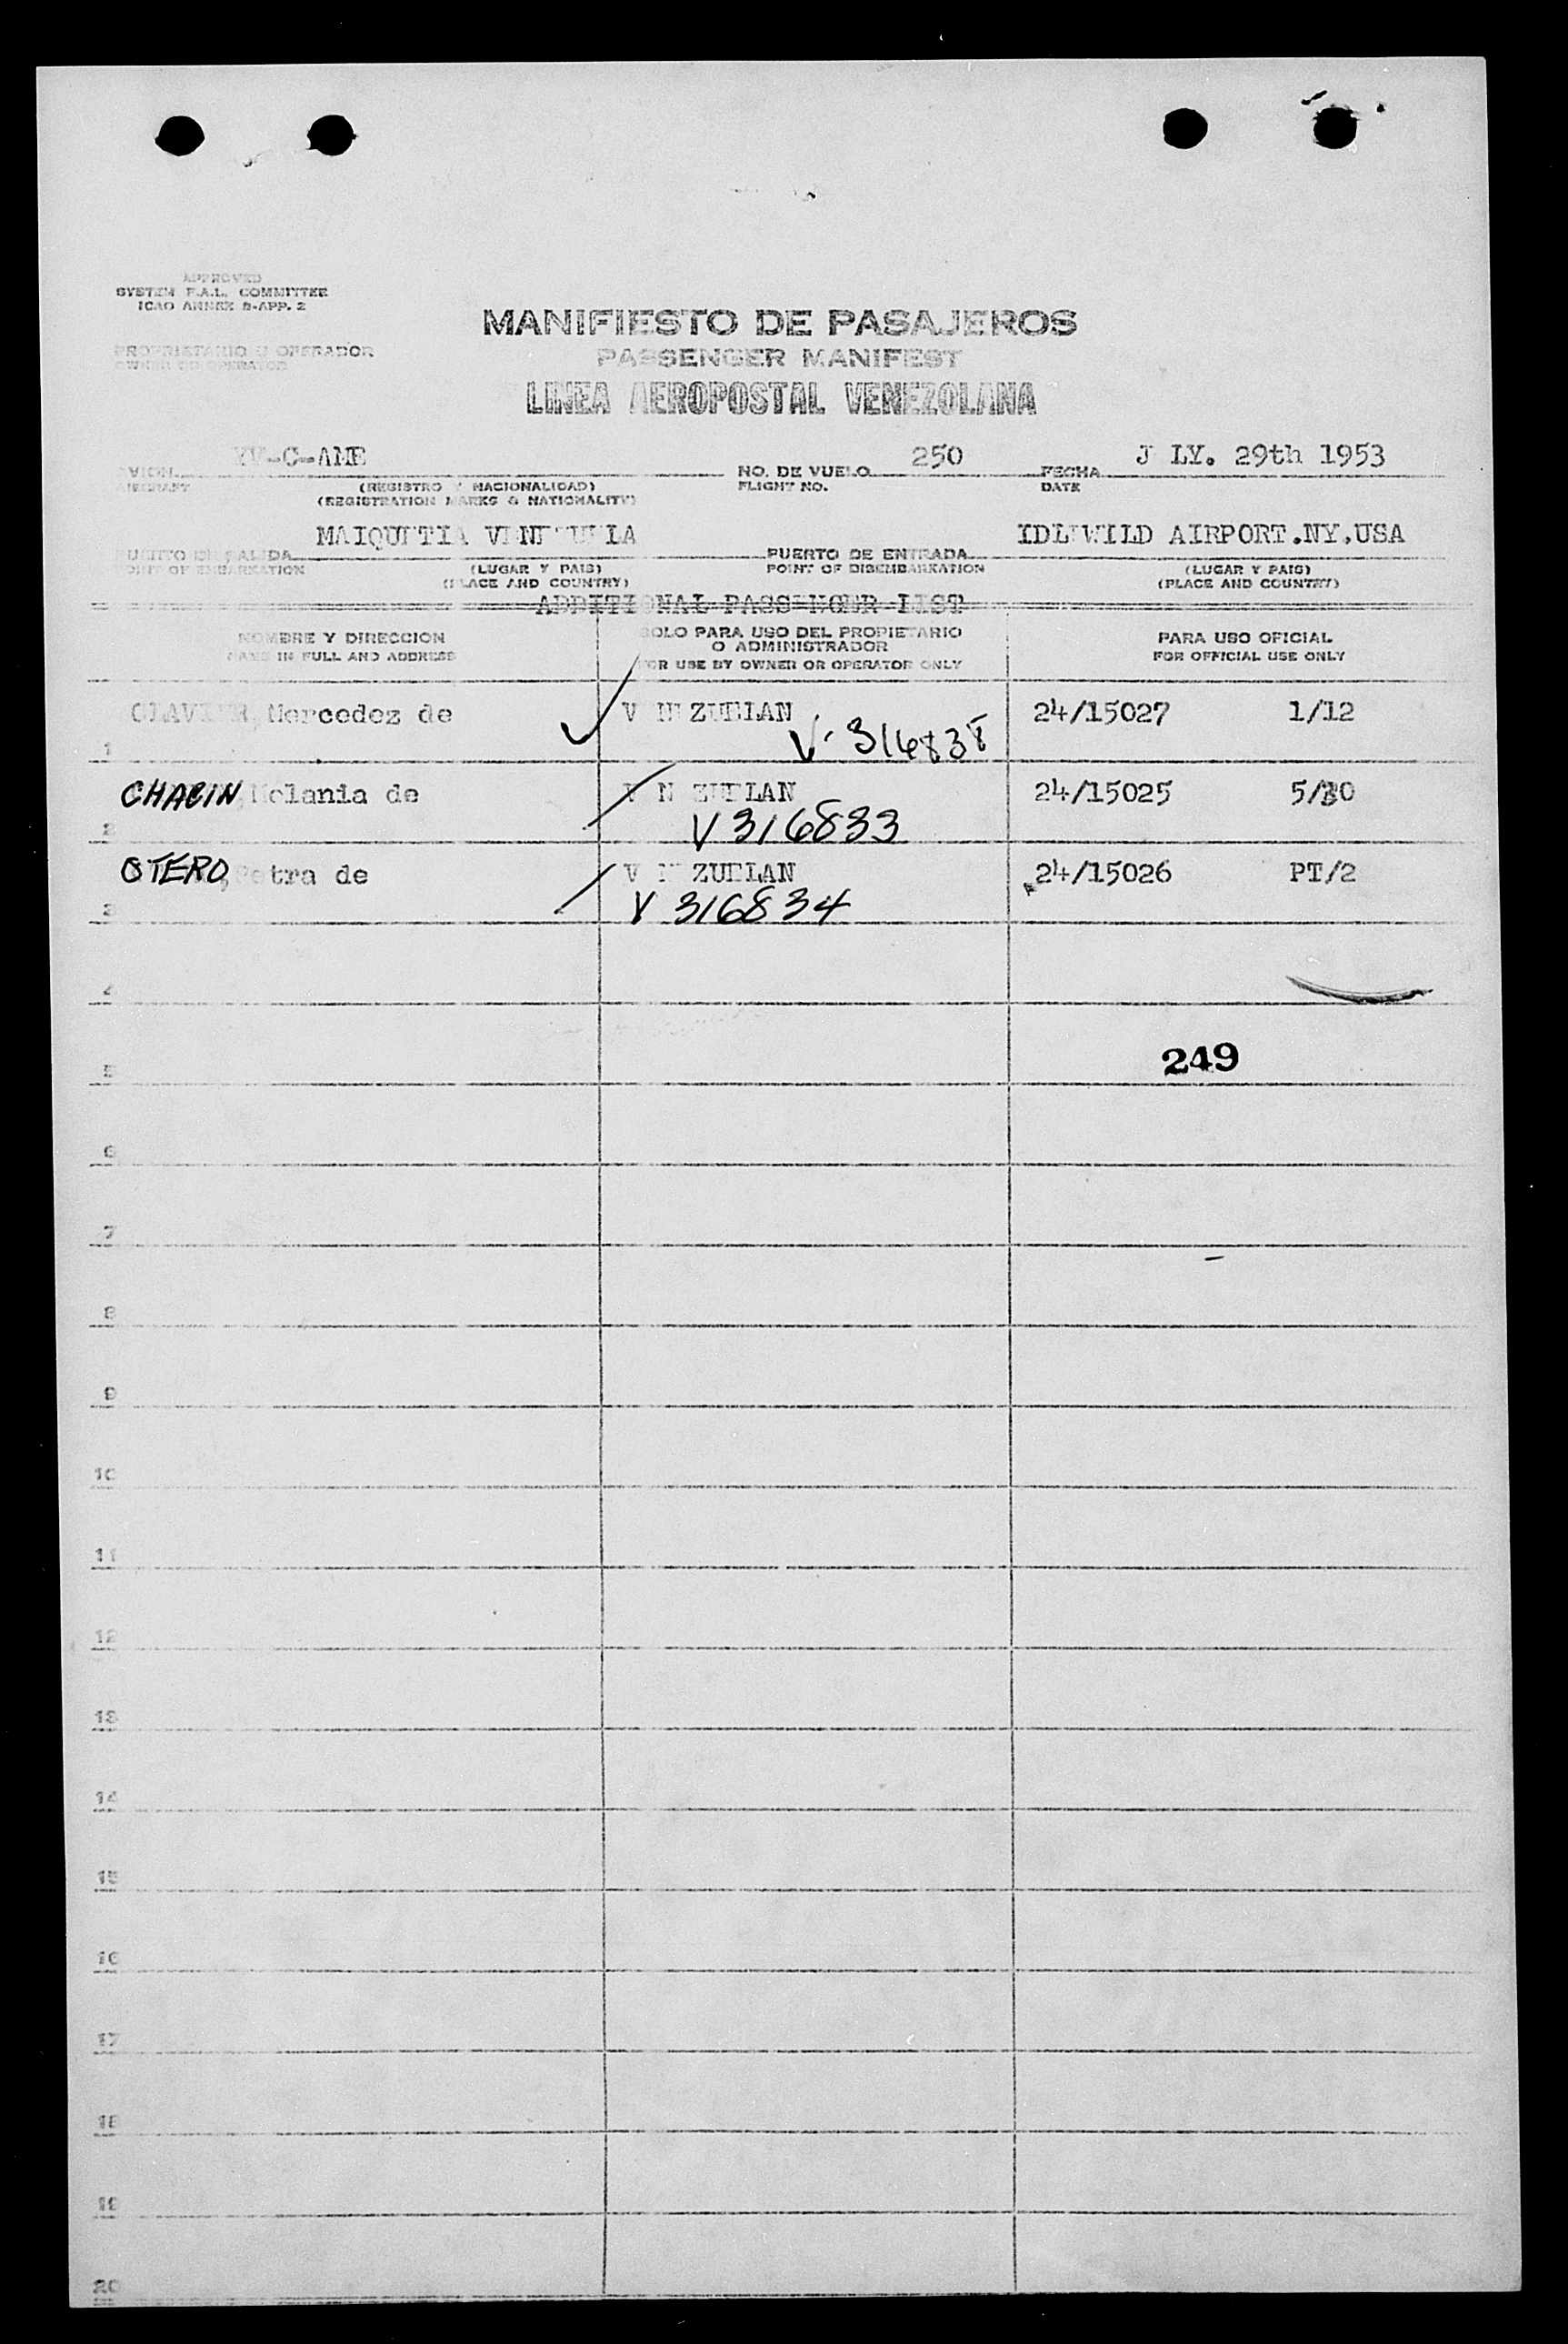 APPROVED
SYSTEM F.A.L. COMMITTEE
ICAO ANNEX 9-APP. 2
MANIFIESTO DE PASAJEROS
PROPRIETARIO U OPERADOR
OWNER OR OPERATOR
PASSENGER MANIFEST
LINEA AEROPOSTAL VENEZOLANA
AVION YV-C-AME NO. DE VUELO 250 FECHA J LY. 29th 1953
AIRCRAFT (REGISTRO Y NACIONALIDAD) FLIGHT NO. DATE
(REGISTRATION MARKS & NATIONALITY)
PUERTO DE SALIDA MAIQUETIA VENEZUELA PUERTO DE ENTRADA IDLEWILD AIRPORT.NY.USA
POINT OF EMBARKATION (LUGAR Y PAIS) POINT OF DISEMBARKATION (LUGAR Y PAIS)
(PLACE AND COUNTRY) (PLACE AND COUNTRY)
ADDITIONAL PASSENGER LIST
NOMBRE Y DIRECCION SOLO PARA USO DEL PROPIETARIO PARA USO OFICIAL
O ADMINISTRADOR
NAME IN FULL AND ADDRESS FOR USE BY OWNER OR OPERATOR ONLY FOR OFFICIAL USE ONLY
CLAVIER, Mercedez de V N ZUELAN 24/15027 1/12
1 V-316838
CHACIN, Melania de V N ZUELAN 24/15025 5/30
2 V 316833
OTERO, Petra de V N ZUELAN 24/15026 PT/2
3 V 316834
4
249
5
6
7
8
9
10
11
12
13
14
15
16
17
18
19
20